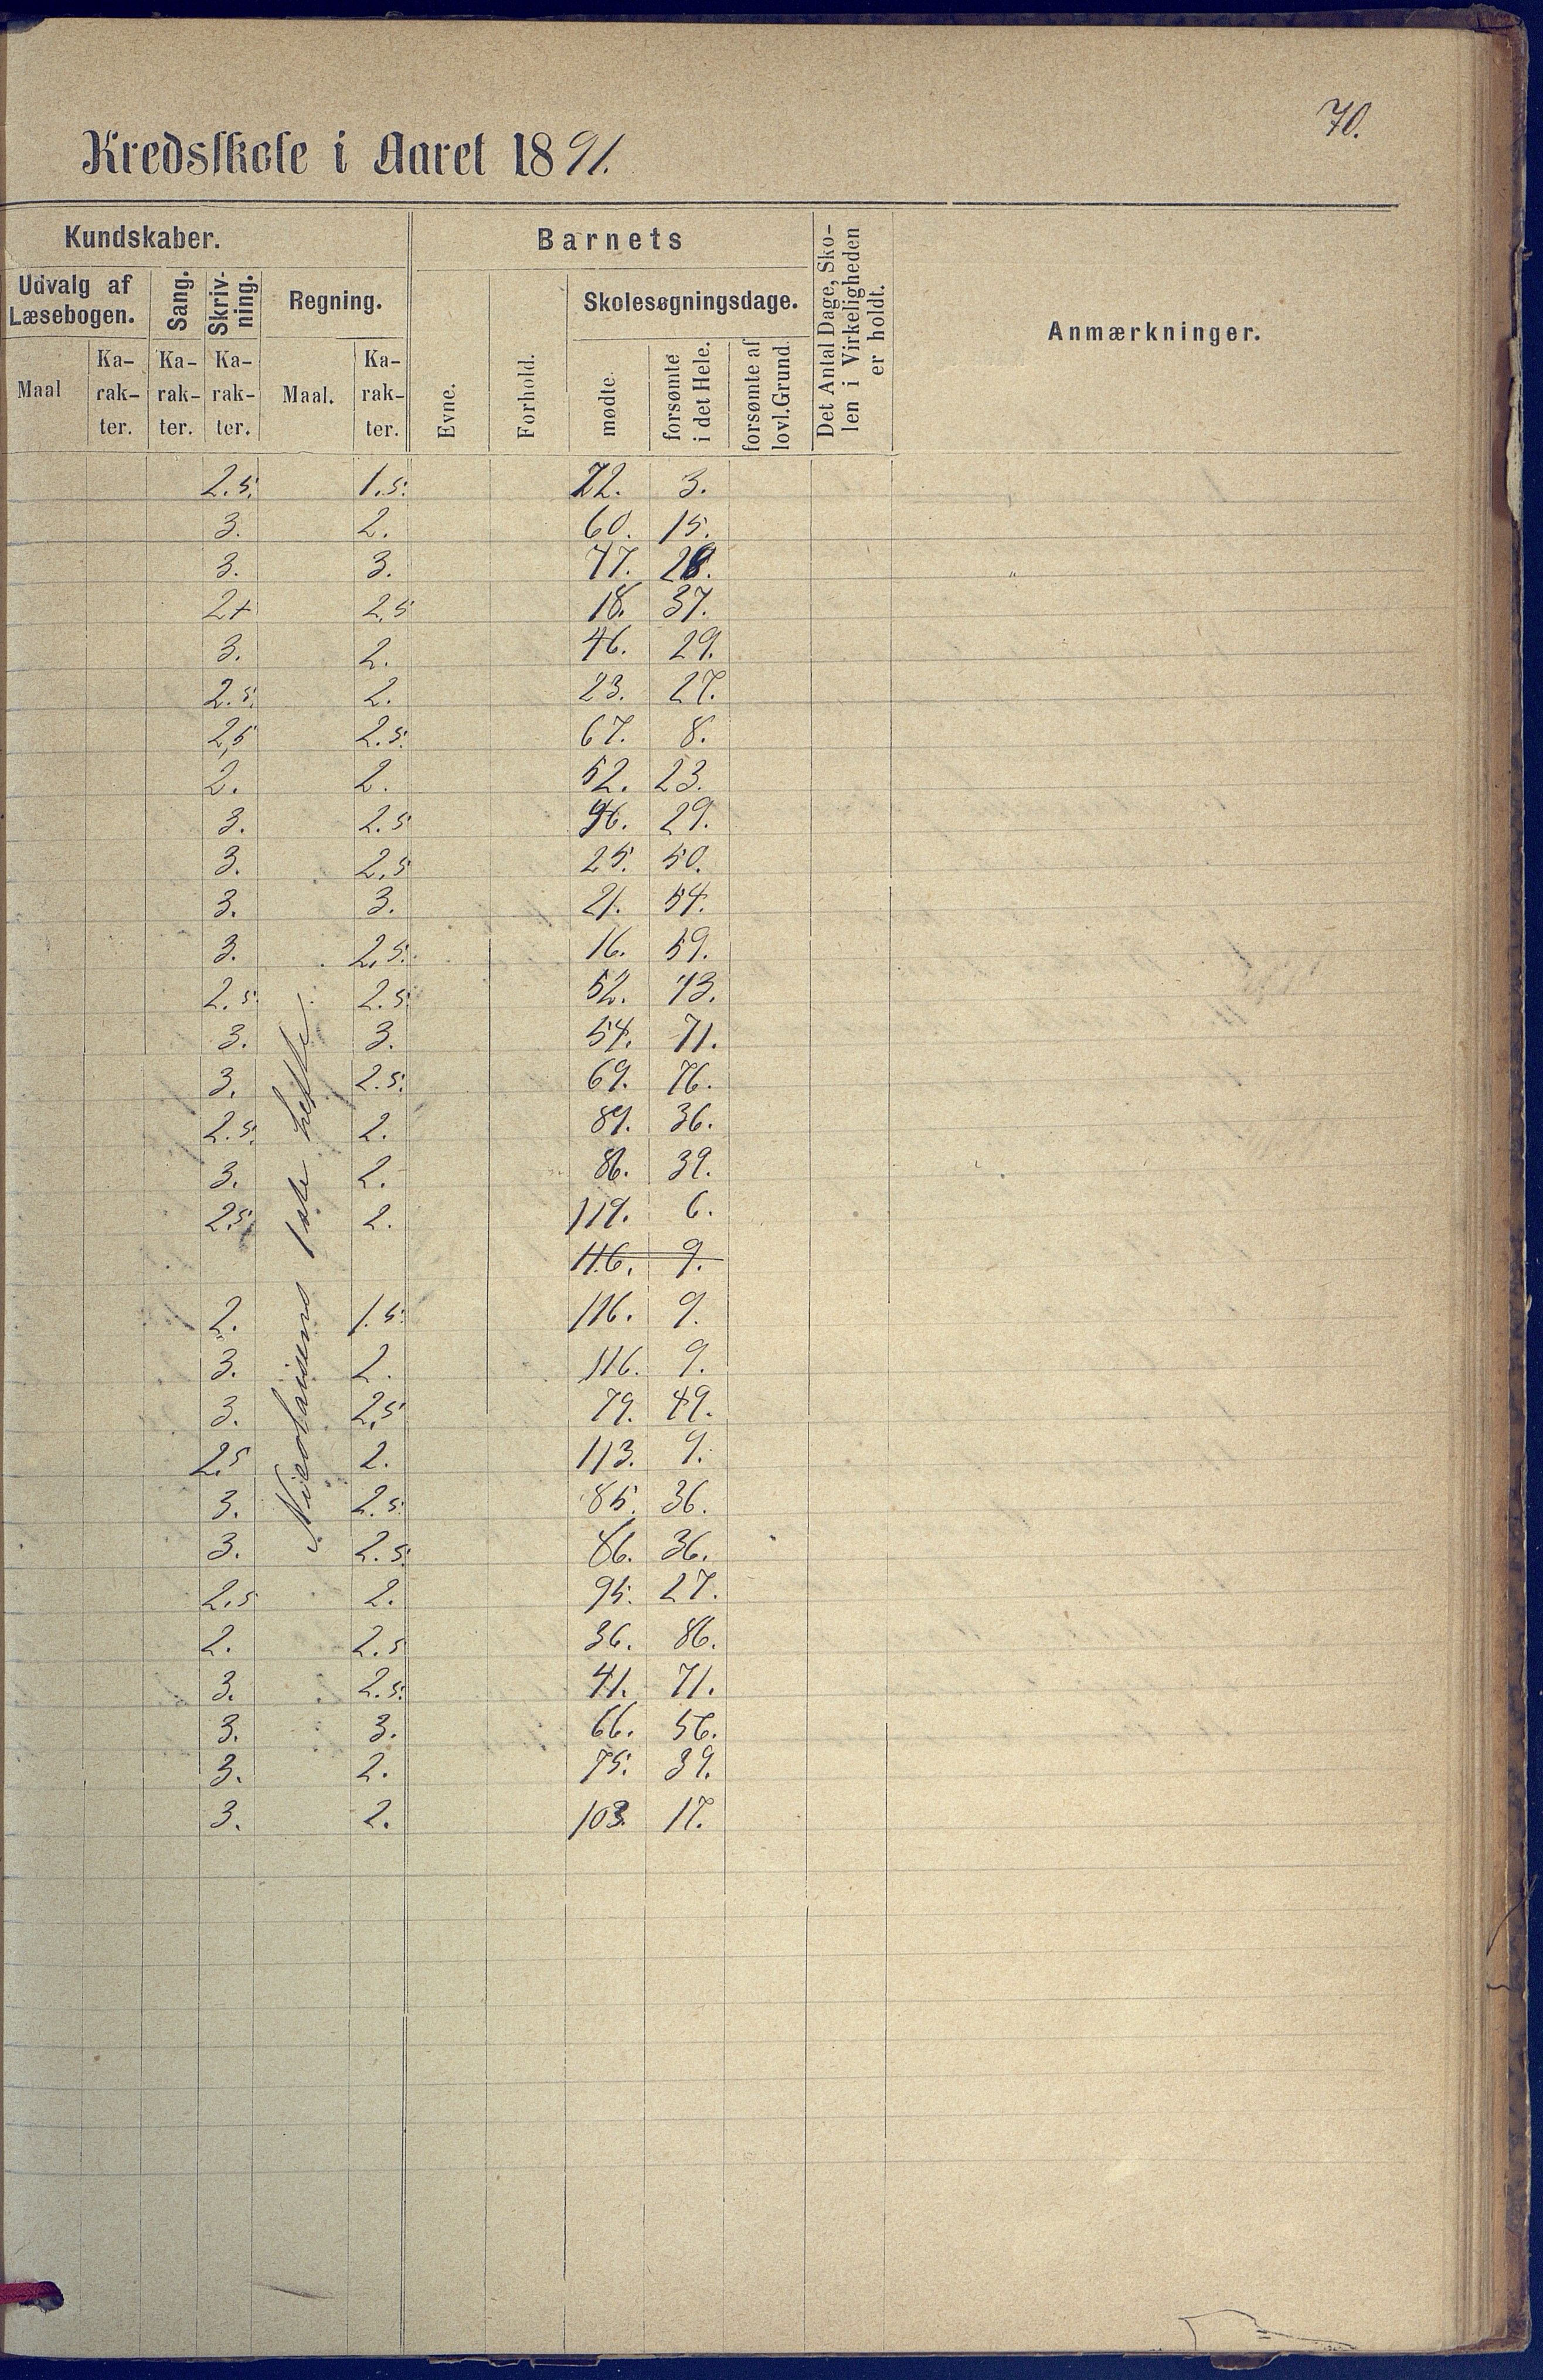 70.
Kredsskole i Aaret 1891.
Kundskaber.
Barnets
Det Antal Dage, Skolen i Virkeligheden er holdt.
Anmærkninger.
Udvalg af Læsebogen.
Sang.
Skrivning.
Regning.
Skolesøgningsdage.
Maal
Karakter.
Karakter.
Karakter.
Maal.
Karakter.
Evne.
Forhold.
mødte.
forsømte i det Hele.
forsømte af lovl. Grund.
2.5. 1.5. 72. 3.
3. 2. 60. 15.
3. 3. 47. 28.
2+ 2,5 18. 37.
3. 2. 46. 29.
2.5. 2. 23. 27.
2,5 2.5. 67. 8.
2. 2. 52. 23.
3. 2.5 46. 29.
3. 2,5 25. 50.
3. 3. 21. 54.
3. 2,5. 16. 59.
2.5. 2.5. 52. 73.
3. 3. 54. 71.
3. 2.5. 69. 76.
2.5. 2. 89. 36.
3. 2. 86. 39.
2,5. 2. 119. 6.
116. 9.
2. 1.5. 116. 9.
3. 2. 116. 9.
3. 2,5 79. 49.
2,5 2. 113. 9.
3. 2.5. 85. 36.
3. 2.5. 86. 36.
2.5 2. 95. 27.
2. 2.5 36. 86.
3. 2.5. 41. 71.
3. 3. 66. 56.
3. 2. 75. 39.
3. 2. 103. 17.
Nicolaisens 1ste hefte.